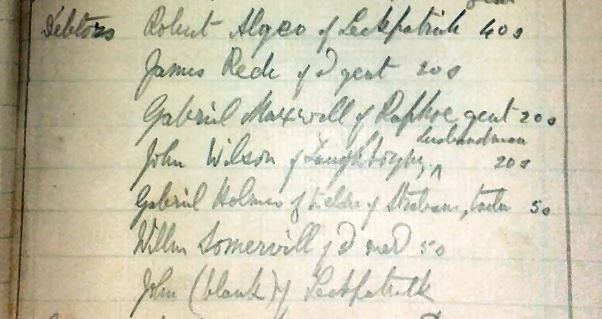 Debtors Robert Algeo of Leckpatrick 40s
James Rede of d gent 20s
Gabriel Maxwell of Raphoe gent 20s
husbandman
John Wilson of 20s
Gabriel Holmes of of Strabane, 5s
Willm Somervill of d 5s
John (blank) of Leckpatrick